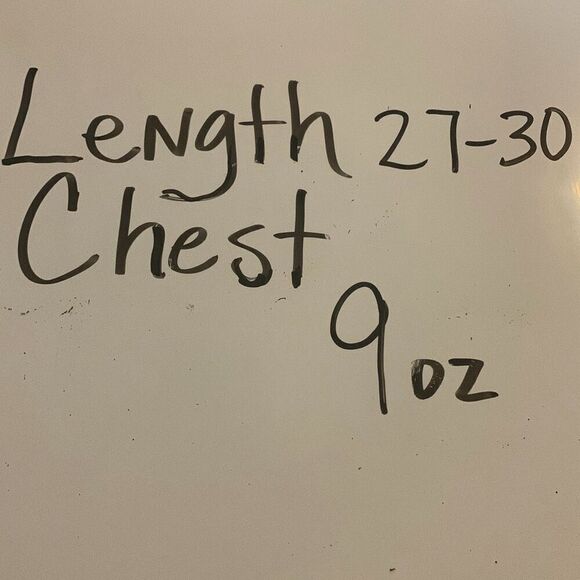 Length 27-30
Chest
9 oz